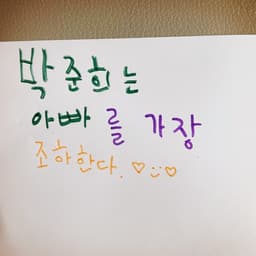 박준희는
아빠를 가장
조하한다. ♡ㅎ♡